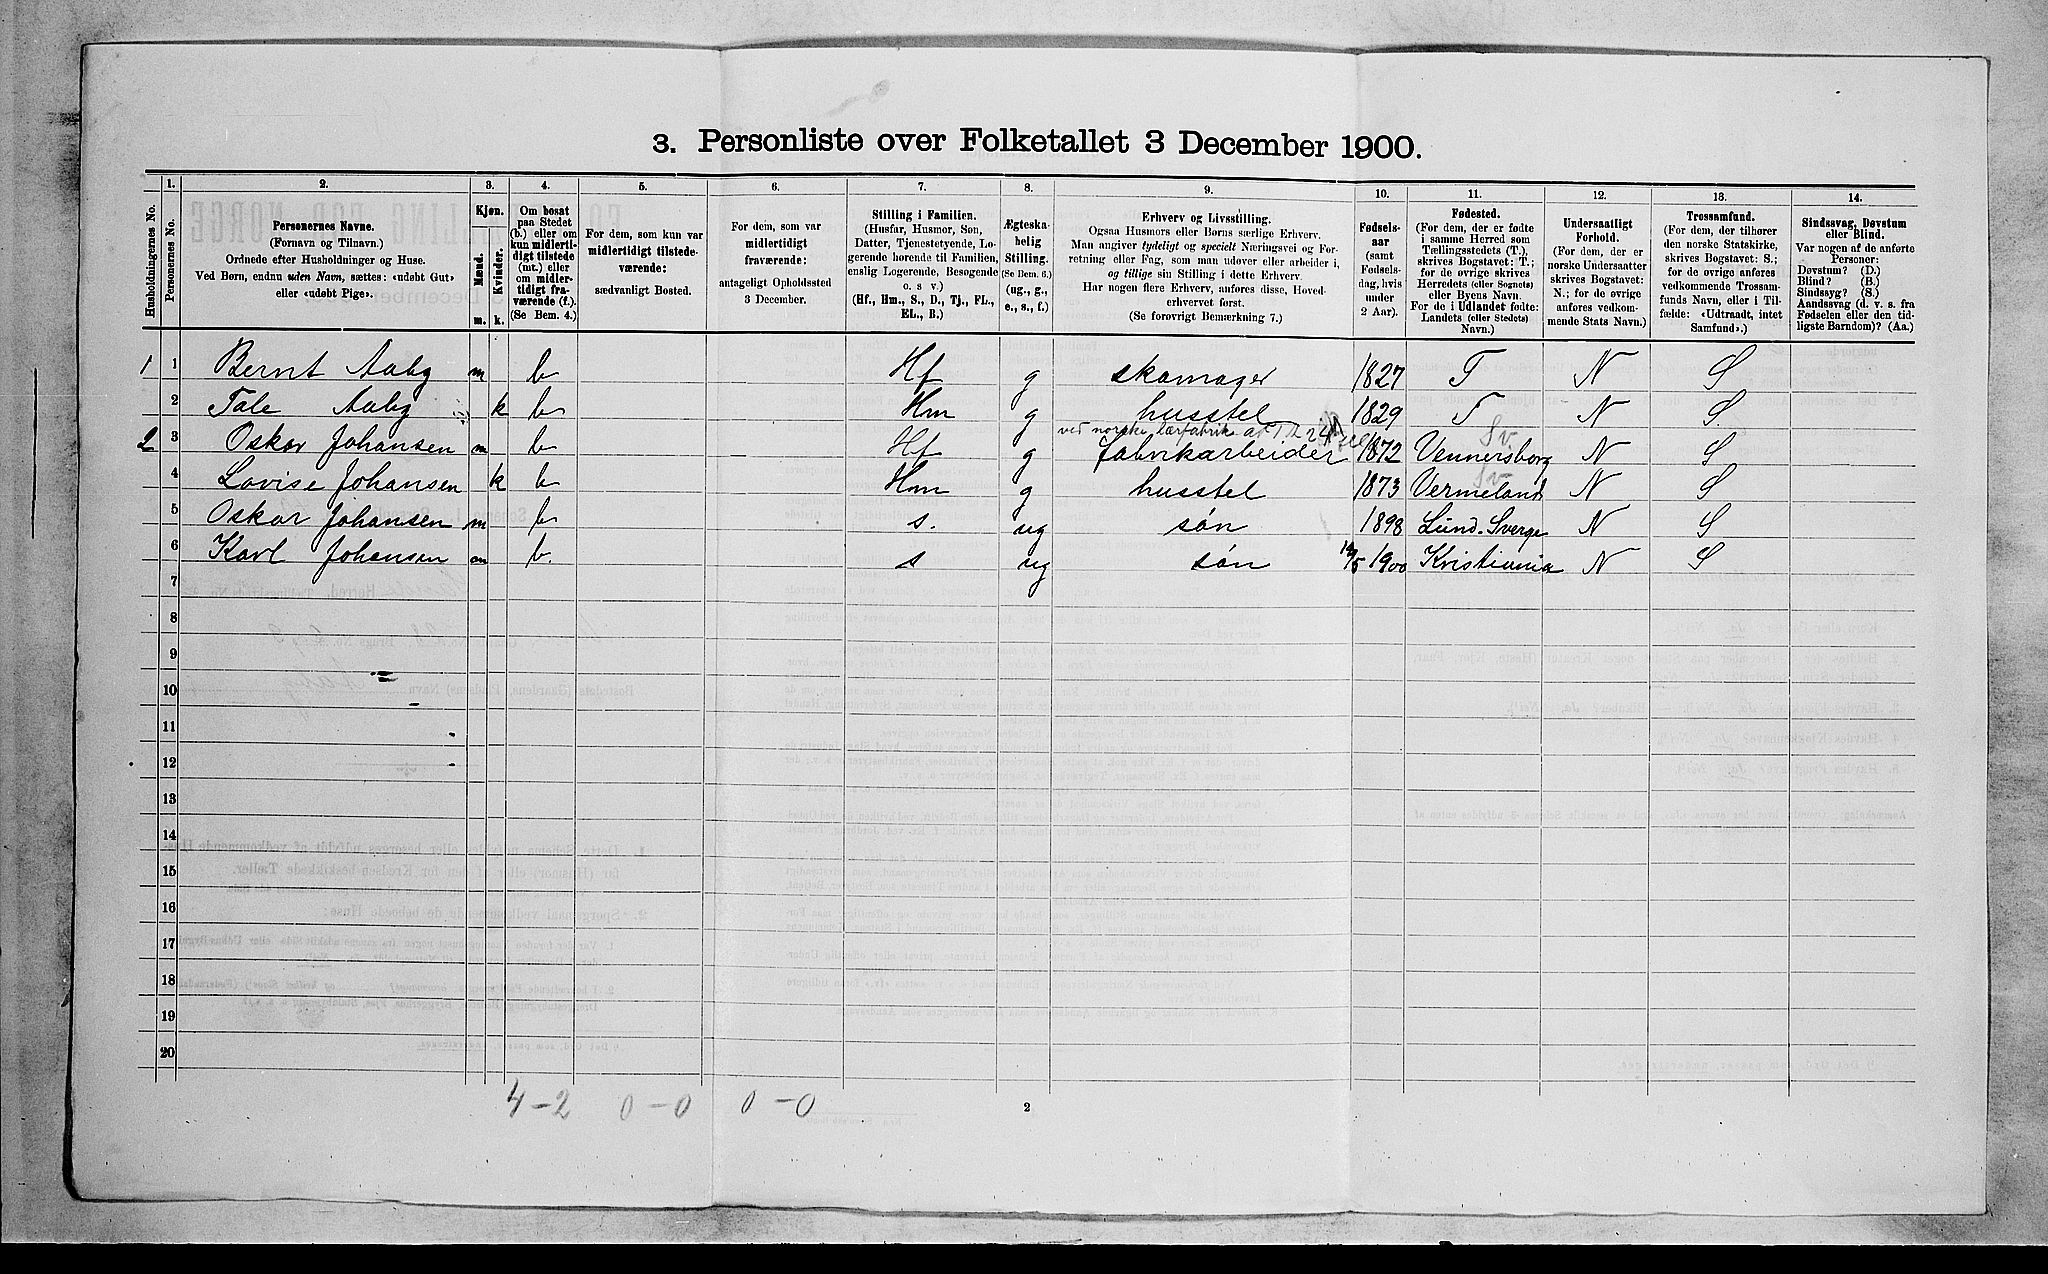 3. Personliste over Folketallet 3 December 1900.
Husholdningernes No.
1. Personernes No.
2. Personernes Navne.
(Fornavn og Tilnavn.)
Ordnede efter Husholdninger og Huse.
Ved Børn, endnu uden Navn, sættes: «udøbt Gut»
eller «udøbt Pige».
3. Kjøn.
Mænd. m.
Kvinder. k.
4. Om bosat
paa Stedet
(b.) eller om
kun midlerti-
digt tilstede
(mt.) eller
om midler-
tidigt fra-
værende (f.).
(Se Bem. 4.)
5. For dem, som kun var
midlertidigt tilstede-
værende:
sædvanligt Bosted.
6. For dem, som var
midlertidigt
fraværende:
antageligt Opholdssted
3 December.
7. Stilling i Familien.
(Husfar, Husmor, Søn,
Datter, Tjenestetyende, Lo-
gerende hørende til Familien,
enslig Logerende, Besøgende
o. s. v.)
(Hf., Hm., S., D., Tj., FL.,
EL., B.)
8. Ægteska-
belig
Stilling.
(Se Bem. 6.)
(ug., g.,
e., s., f.)
9. Erhverv og Livsstilling.
Ogsaa Husmors eller Børns særlige Erhverv.
Man angiver tydeligt og specielt Næringsvei og For-
retning eller Fag, som man udøver eller arbeider i,
og tillige sin Stilling i dette Erhverv.
Har nogen flere Erhverv, anføres disse, Hoved-
erhvervet først.
(Se forøvrigt Bemærkning 7.)
10. Fødsels-
aar
(samt
Fødsels-
dag, hvis
under
2 Aar).
11. Fødested.
(For dem, der er fødte
i samme Herred som
Tællingsstedets (T.),
skrives Bogstavet: T.;
for de øvrige skrives
Herredets (eller Sognets)
eller Byens Navn.
For de i Udlandet fødte:
Landets (eller Stedets)
Navn.)
12. Undersaatligt
Forhold.
(For dem, der er
norske Undersaatter
skrives Bogstavet:
N.; for de øvrige
anføres vedkom-
mende Stats Navn.)
13. Trossamfund.
(For dem, der tilhører
den norske Statskirke,
skrives Bogstavet: S.;
for de øvrige anføres
vedkommende Trossam-
funds Navn, eller i Til-
fælde: «Udtraadt, intet
Samfund».)
14. Sindssvag, Døvstum
eller Blind.
Var nogen af de anførte
Personer:
Døvstum? (D.)
Blind? (B.)
Sindssyg? (S.)
Aandssvag (d. v. s. fra
Fødselen eller den tid-
ligste Barndom)? (Aa.)
1 1 Bernt Aaby m b Hf g skomager 1827 T N S
2 Tale Aaby k b Hm g husstel 1829 T N S.
ved norske Lærfabrik Sv.
2 3 Oskar Johansen m b Hf g fabrikarbeider 1872 Vennersborg N S
Sv
4 Lovise Johansen k b Hm g husstel 1873 Vermeland N S
5 Oskar Johansen m b s. ug søn 1898 Lund. Sverge N S
6 Karl Johansen m b. s ug søn 1900 Kristiania N S
7
8
9
10
11
12
13
14
15
16
17
18
19
20
4-2 0-0 0-0 2